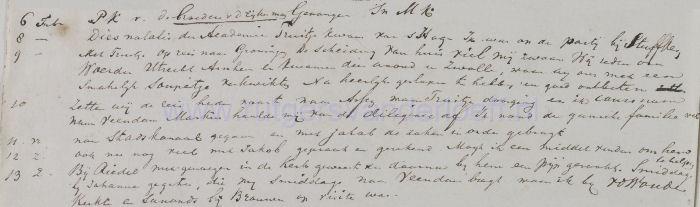 6 Febr PK v. d. Broeder v d Eykemay Gevangen In MK
8 — Dies natalis der Academie Truitje kwam van s Hage In was on de party bij Stuffken
9 — Met Truitje Op reis naar Groningen De scheiding van huis viel mij zwaar Wij reden over
Woerden Utrecht Arnhem en kwamen des avonds in Zwoll, waar zy ons met een
Smakelijk Soupeetje verkwikte Na heerlijk geslapen te hebben, en goed ontbeten
10 Zetten wij de reis heden voort naar Assen, maar Truitje en ik
naar Veendam Martin haalde mij van de diligence af Ik vond de gansche familie wel
11 n. naar Stadskanaal gegaan en met Jakob de zaken in orde gebragt
12 Z. ook nu nog veel met Jakob gepraat en gerekend Mogt ik een middel vinden om hem te helpen
13 Z. Bij Riedel met in de Kerk geweest en daarna bij hem een pijp gerookt. Smiddags
bij Johanna gegeten, die mij smiddags naar Veendam bragt waar ik bij
Kerkte en savonds bij Brouwer op visite was